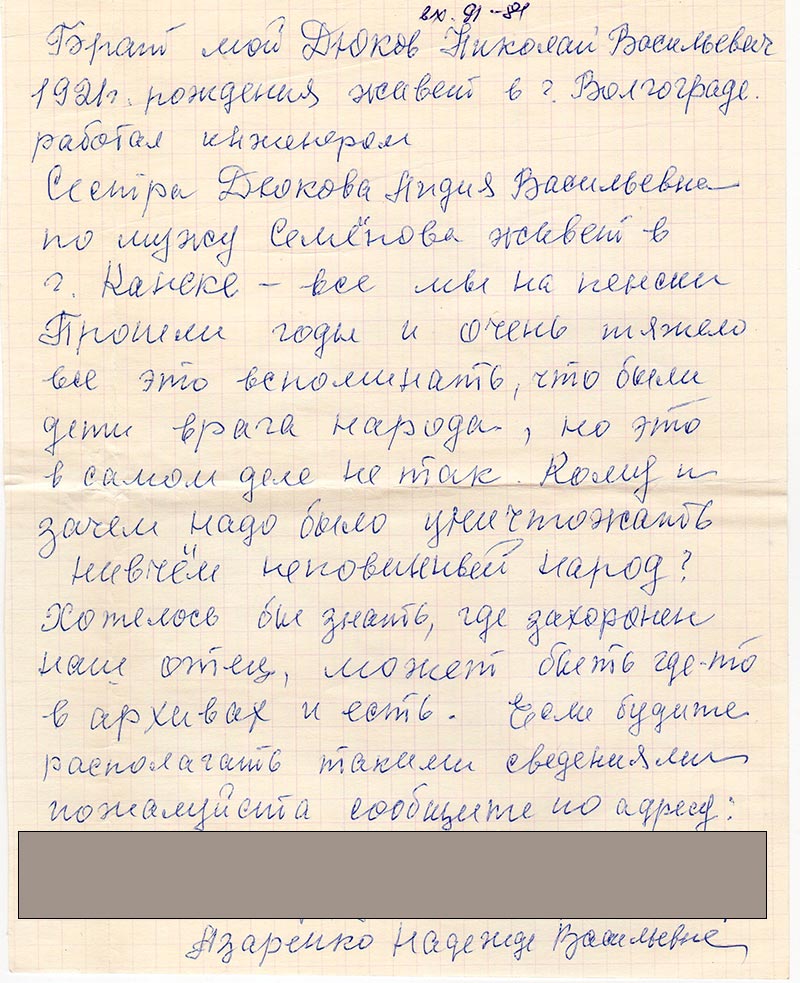 вх. 91-81
Брат мой Дюков Николай Васильевич
1921г. рождения живет в г. Волгограде.
работал инженером
Сестра Дюкова Лидия Васильевна
по мужу Семёнова живет в
г. Канске – все мы на пенсии
Прошли годы и очень тяжело
все это вспоминать, что были
дети врага народа, но это
в самом деле не так. Кому и
зачем надо было уничтожать
ничём неповинный народ?
Хотелось бы знать, где захоронен
наш отец, может быть где-то
в архивах и есть. Если будите
располагать такими сведениями
пожалуйста сообщите по адресу:
Азаренко Надежде Васильевне